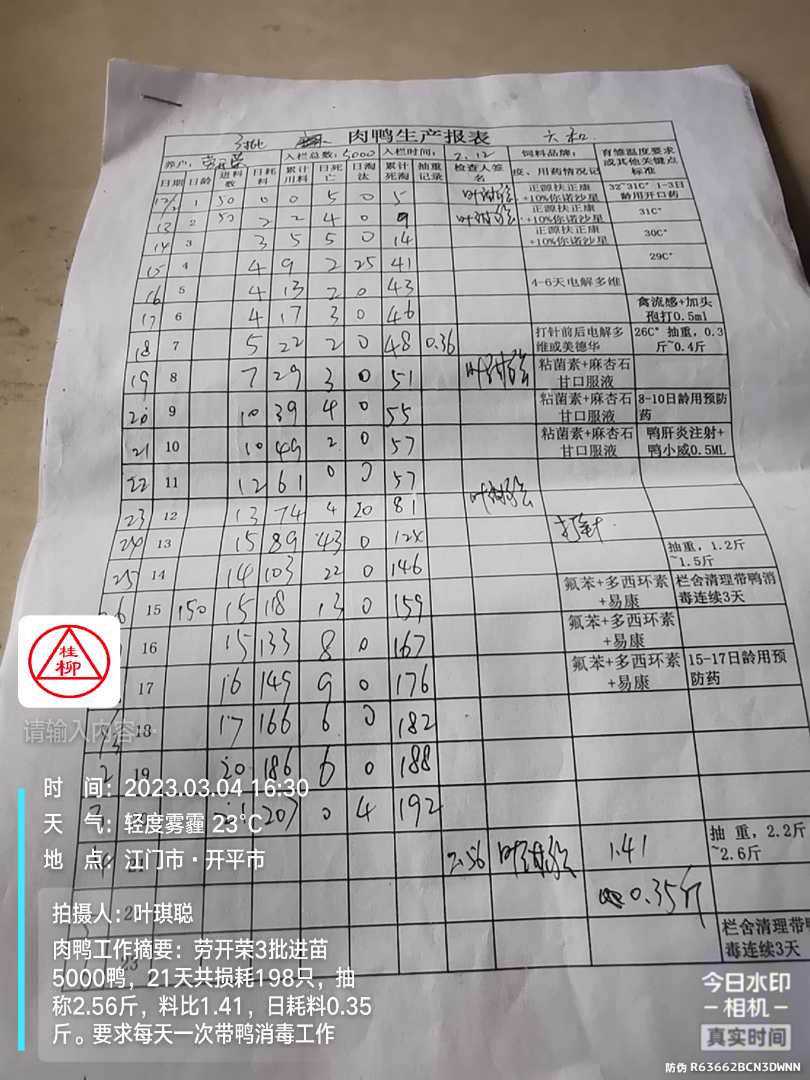 3批 肉鸭生产报表 六和
养户： 劳开荣 入栏总数：5000 入栏时间： 2.12 饲料品牌： 育雏温度要求或其他关键点标准
日期 日龄 进料数 日耗料 累计用料 日死亡 日淘汰 累计死淘 抽重记录 检查人签名 度、用药情况记
12/2 1 50 0 0 5 0 5 正源扶正康+10%你诺沙星 32°31C° 1-3日龄用开口药
13 2 50 2 2 4 0 9 正源扶正康+10%你诺沙星 31C°
14 3 3 5 5 0 14 正源扶正康+10%你诺沙星 30C°
15 4 4 9 2 25 41 29C°
16 5 4 13 2 0 43 4-6天电解多维
17 6 4 17 3 0 46 禽流感+加头孢打0.5ml
18 7 5 22 2 0 48 0.36 打针前后电解多维或美德华 26C° 抽重，0.3斤~0.4斤
19 8 7 29 3 0 51 粘菌素+麻杏石甘口服液
20 9 10 39 4 0 55 粘菌素+麻杏石甘口服液 8-10日龄用预防药
21 10 10 49 2 0 57 粘菌素+麻杏石甘口服液 鸭肝炎注射+鸭小威0.5ML
22 11 12 61 0 0 57
23 12 13 74 4 20 81
24 13 15 89 43 0 124 打针
25 14 14 103 22 0 146 抽重，1.2斤~1.5斤
26 15 150 15 118 13 0 159 氟苯+多西环素+易康 栏舍清理带鸭消毒连续3天
16 15 133 8 0 167 氟苯+多西环素+易康
17 16 149 9 0 176 氟苯+多西环素+易康 15-17日龄用预防药
18 17 166 6 0 182
2 19 20 186 6 0 188
21 207 0 4 192
2.56 1.41 抽重，2.2斤~2.6斤
0.35斤
栏舍清理带鸭消毒连续3天
桂柳
请输入内容…
时 间：2023.03.04 16:30
天 气：轻度雾霾 23℃
地 点：江门市·开平市
拍摄人：叶琪聪
肉鸭工作摘要：劳开荣3批进苗
5000鸭，21天共损耗198只，抽
称2.56斤，料比1.41，日耗料0.35
斤。要求每天一次带鸭消毒工作
今日水印
相机
真实时间
防伪 R63662BCN3DWNN